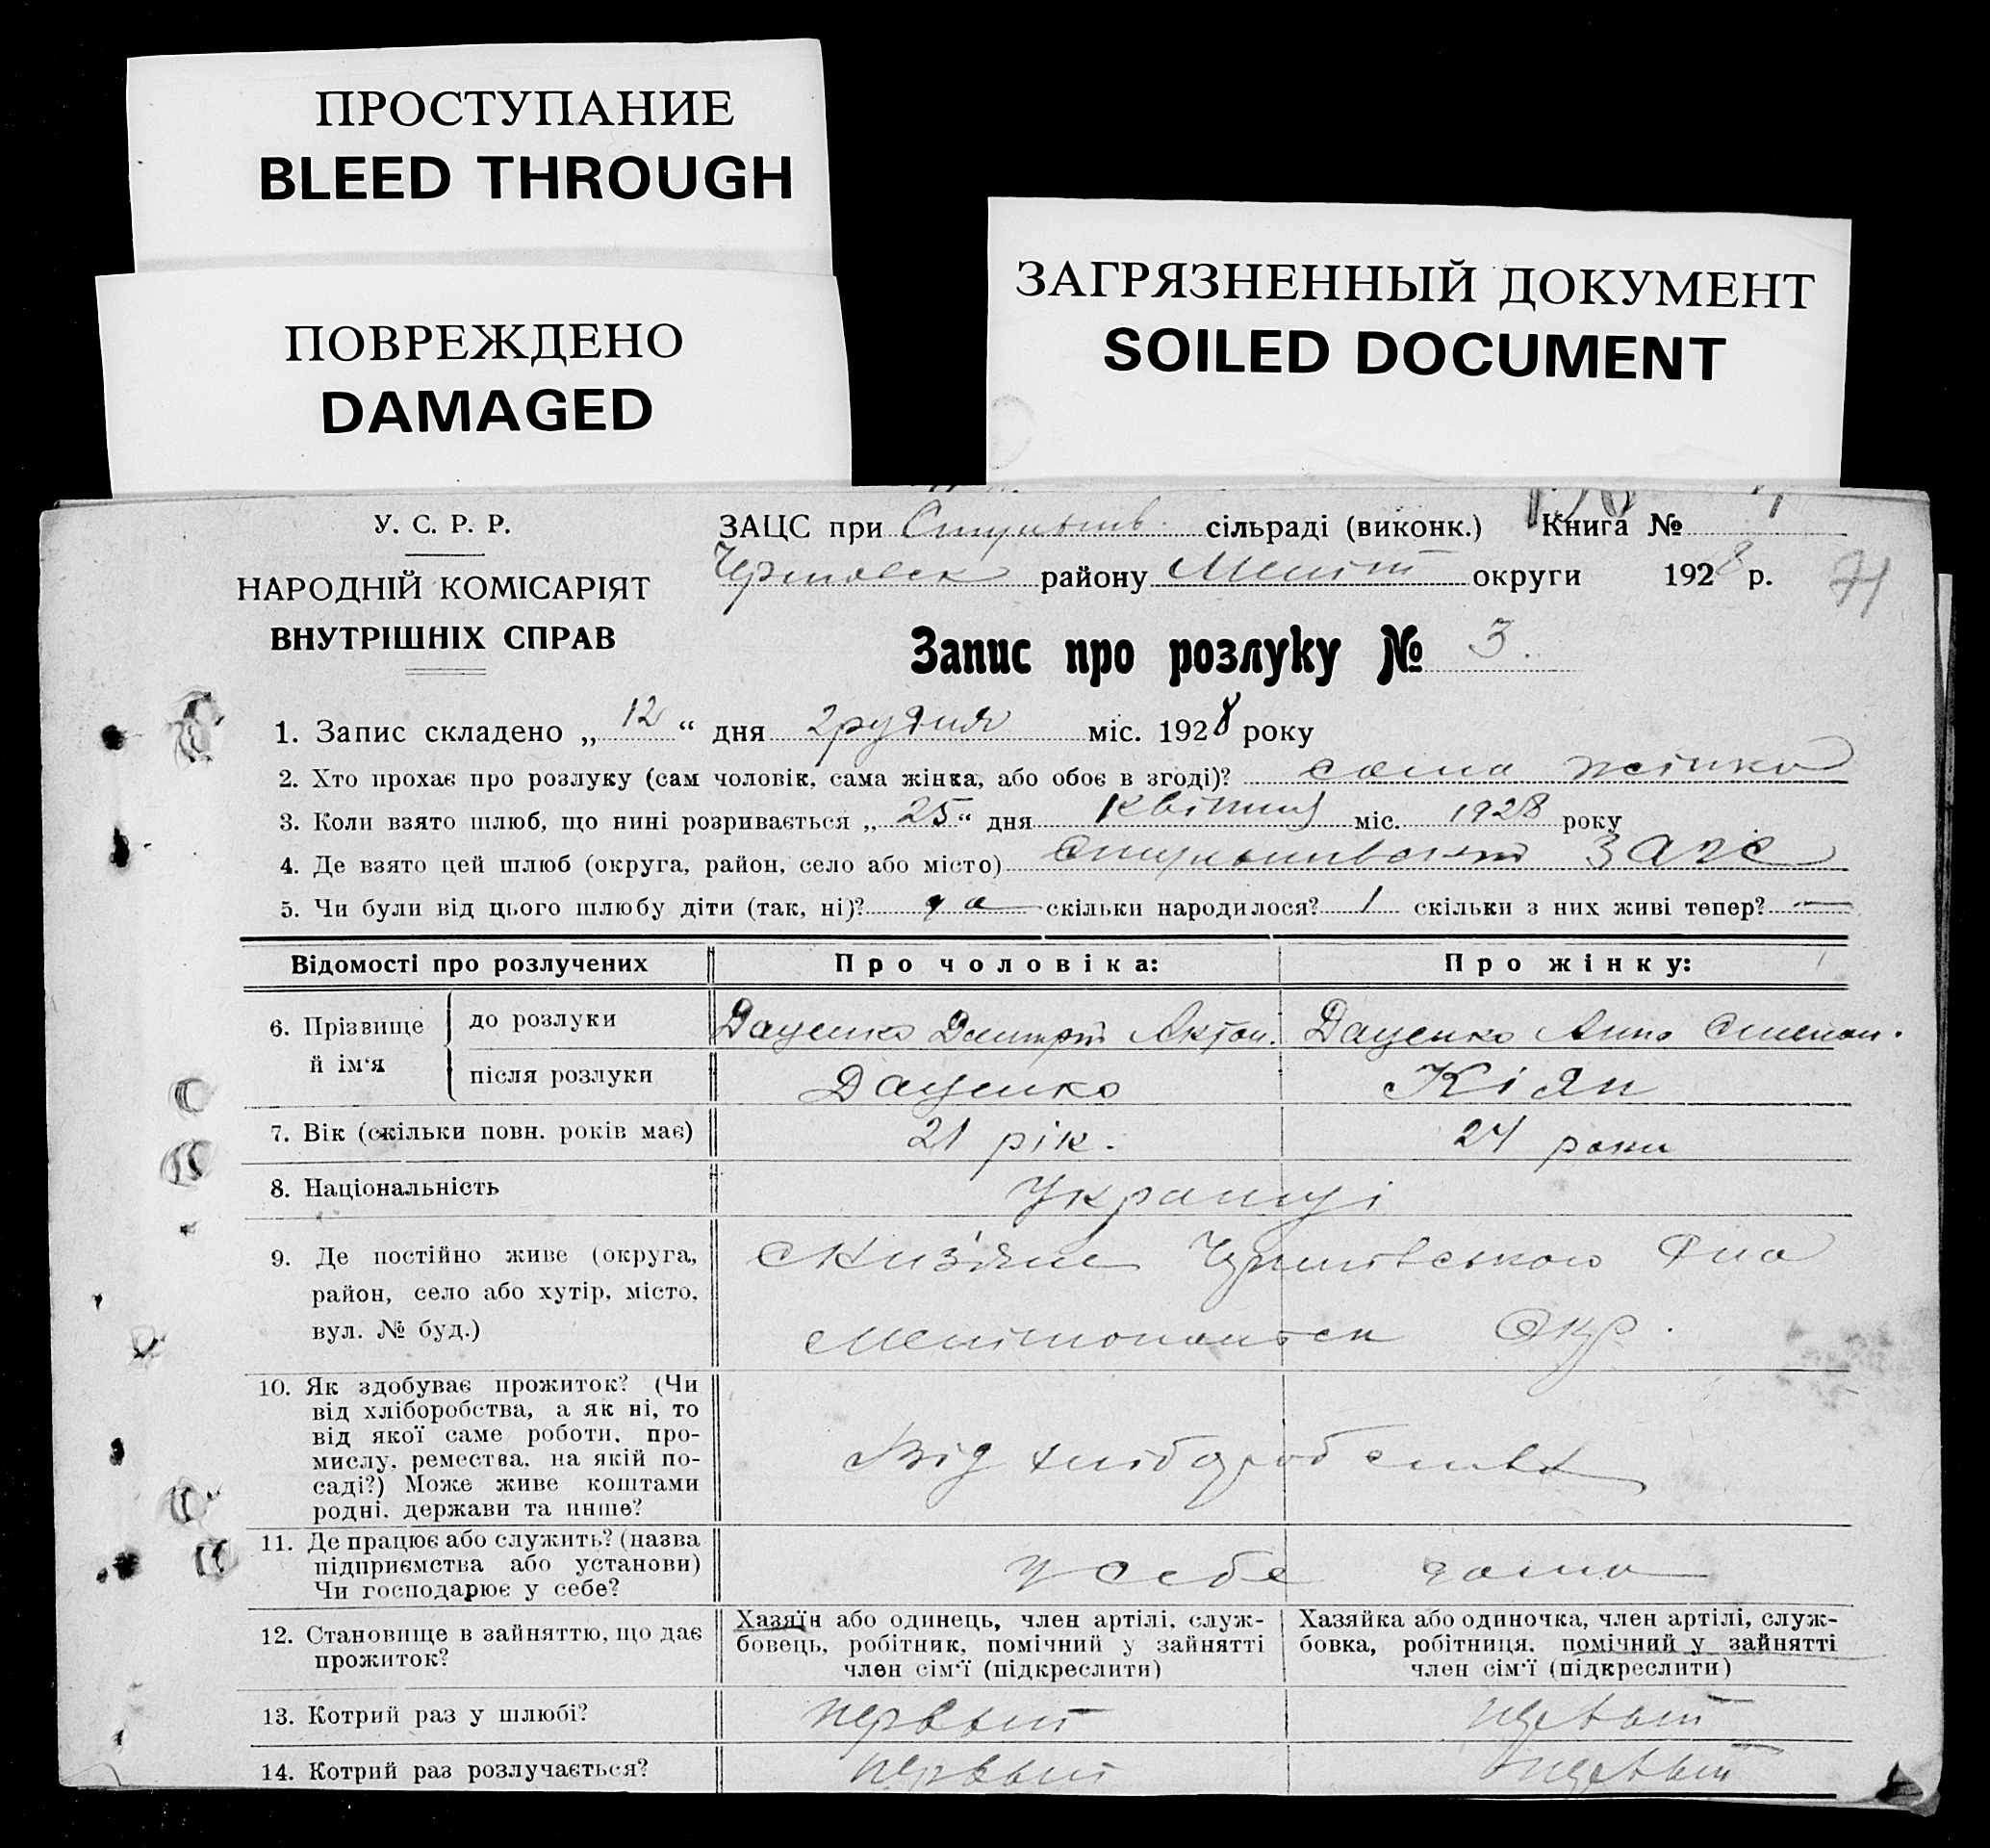 ПРОСТУПАНИЕ
BLEED THROUGH
ПОВРЕЖДЕНО
DAMAGED
ЗАГРЯЗНЕННЫЙ ДОКУМЕНТ
SOILED DOCUMENT
У. С. Р. Р.
НАРОДНІЙ КОМІСАРІЯТ
ВНУТРІШНІХ СПРАВ
ЗАЦС при сільраді (виконк.) Книга №
району Меліт округи 1928 р. 71
Запис про розлуку № 3.
1. Запис складено „ 12 “ дня грудня міс. 1928 року
2. Хто прохає про розлуку (сам чоловік, сама жінка, або обоє в згоді)? сама жінка
3. Коли взято шлюб, що нині розривається „ 25 “ дня квітня міс. 1928 року
4. Де взято цей шлюб (округа, район, село або місто) ЗАГС
5. Чи були від цього шлюбу діти (так, ні)? да скільки народилося? 1 скільки з них живі тепер? —
Відомості про розлучених Про чоловіка: Про жінку:
6. Прізвище й ім'я до розлуки Даценко Дмитрій Даценко Анна Степан.
після розлуки Даценко Кіян
7. Вік (скільки повн. років має) 21 рік. 24 роки
8. Національність Українці
9. Де постійно живе (округа,
район, село або хутір, місто,
вул. № буд.)
Мелітопольск Окр.
10. Як здобуває прожиток? (Чи
від хліборобства, а як ні, то
від якої саме роботи, про-
мислу, ремества, на якій по-
саді?) Може живе коштами
родні, держави та инше?
Від хліборобства
11. Де працює або служить? (назва
підприємства або установи)
Чи господарює у себе?
у себе дома
12. Становище в зайняттю, що дає
прожиток?
Хазяїн або одинець, член артілі, служ-
бовець, робітник, помічний у зайнятті
член сім'ї (підкреслити)
Хазяйка або одиночка, член артілі, служ-
бовка, робітниця, помічний у зайнятті
член сім'ї (підкреслити)
13. Котрий раз у шлюбі? первый первый
14. Котрий раз розлучається? первый первый